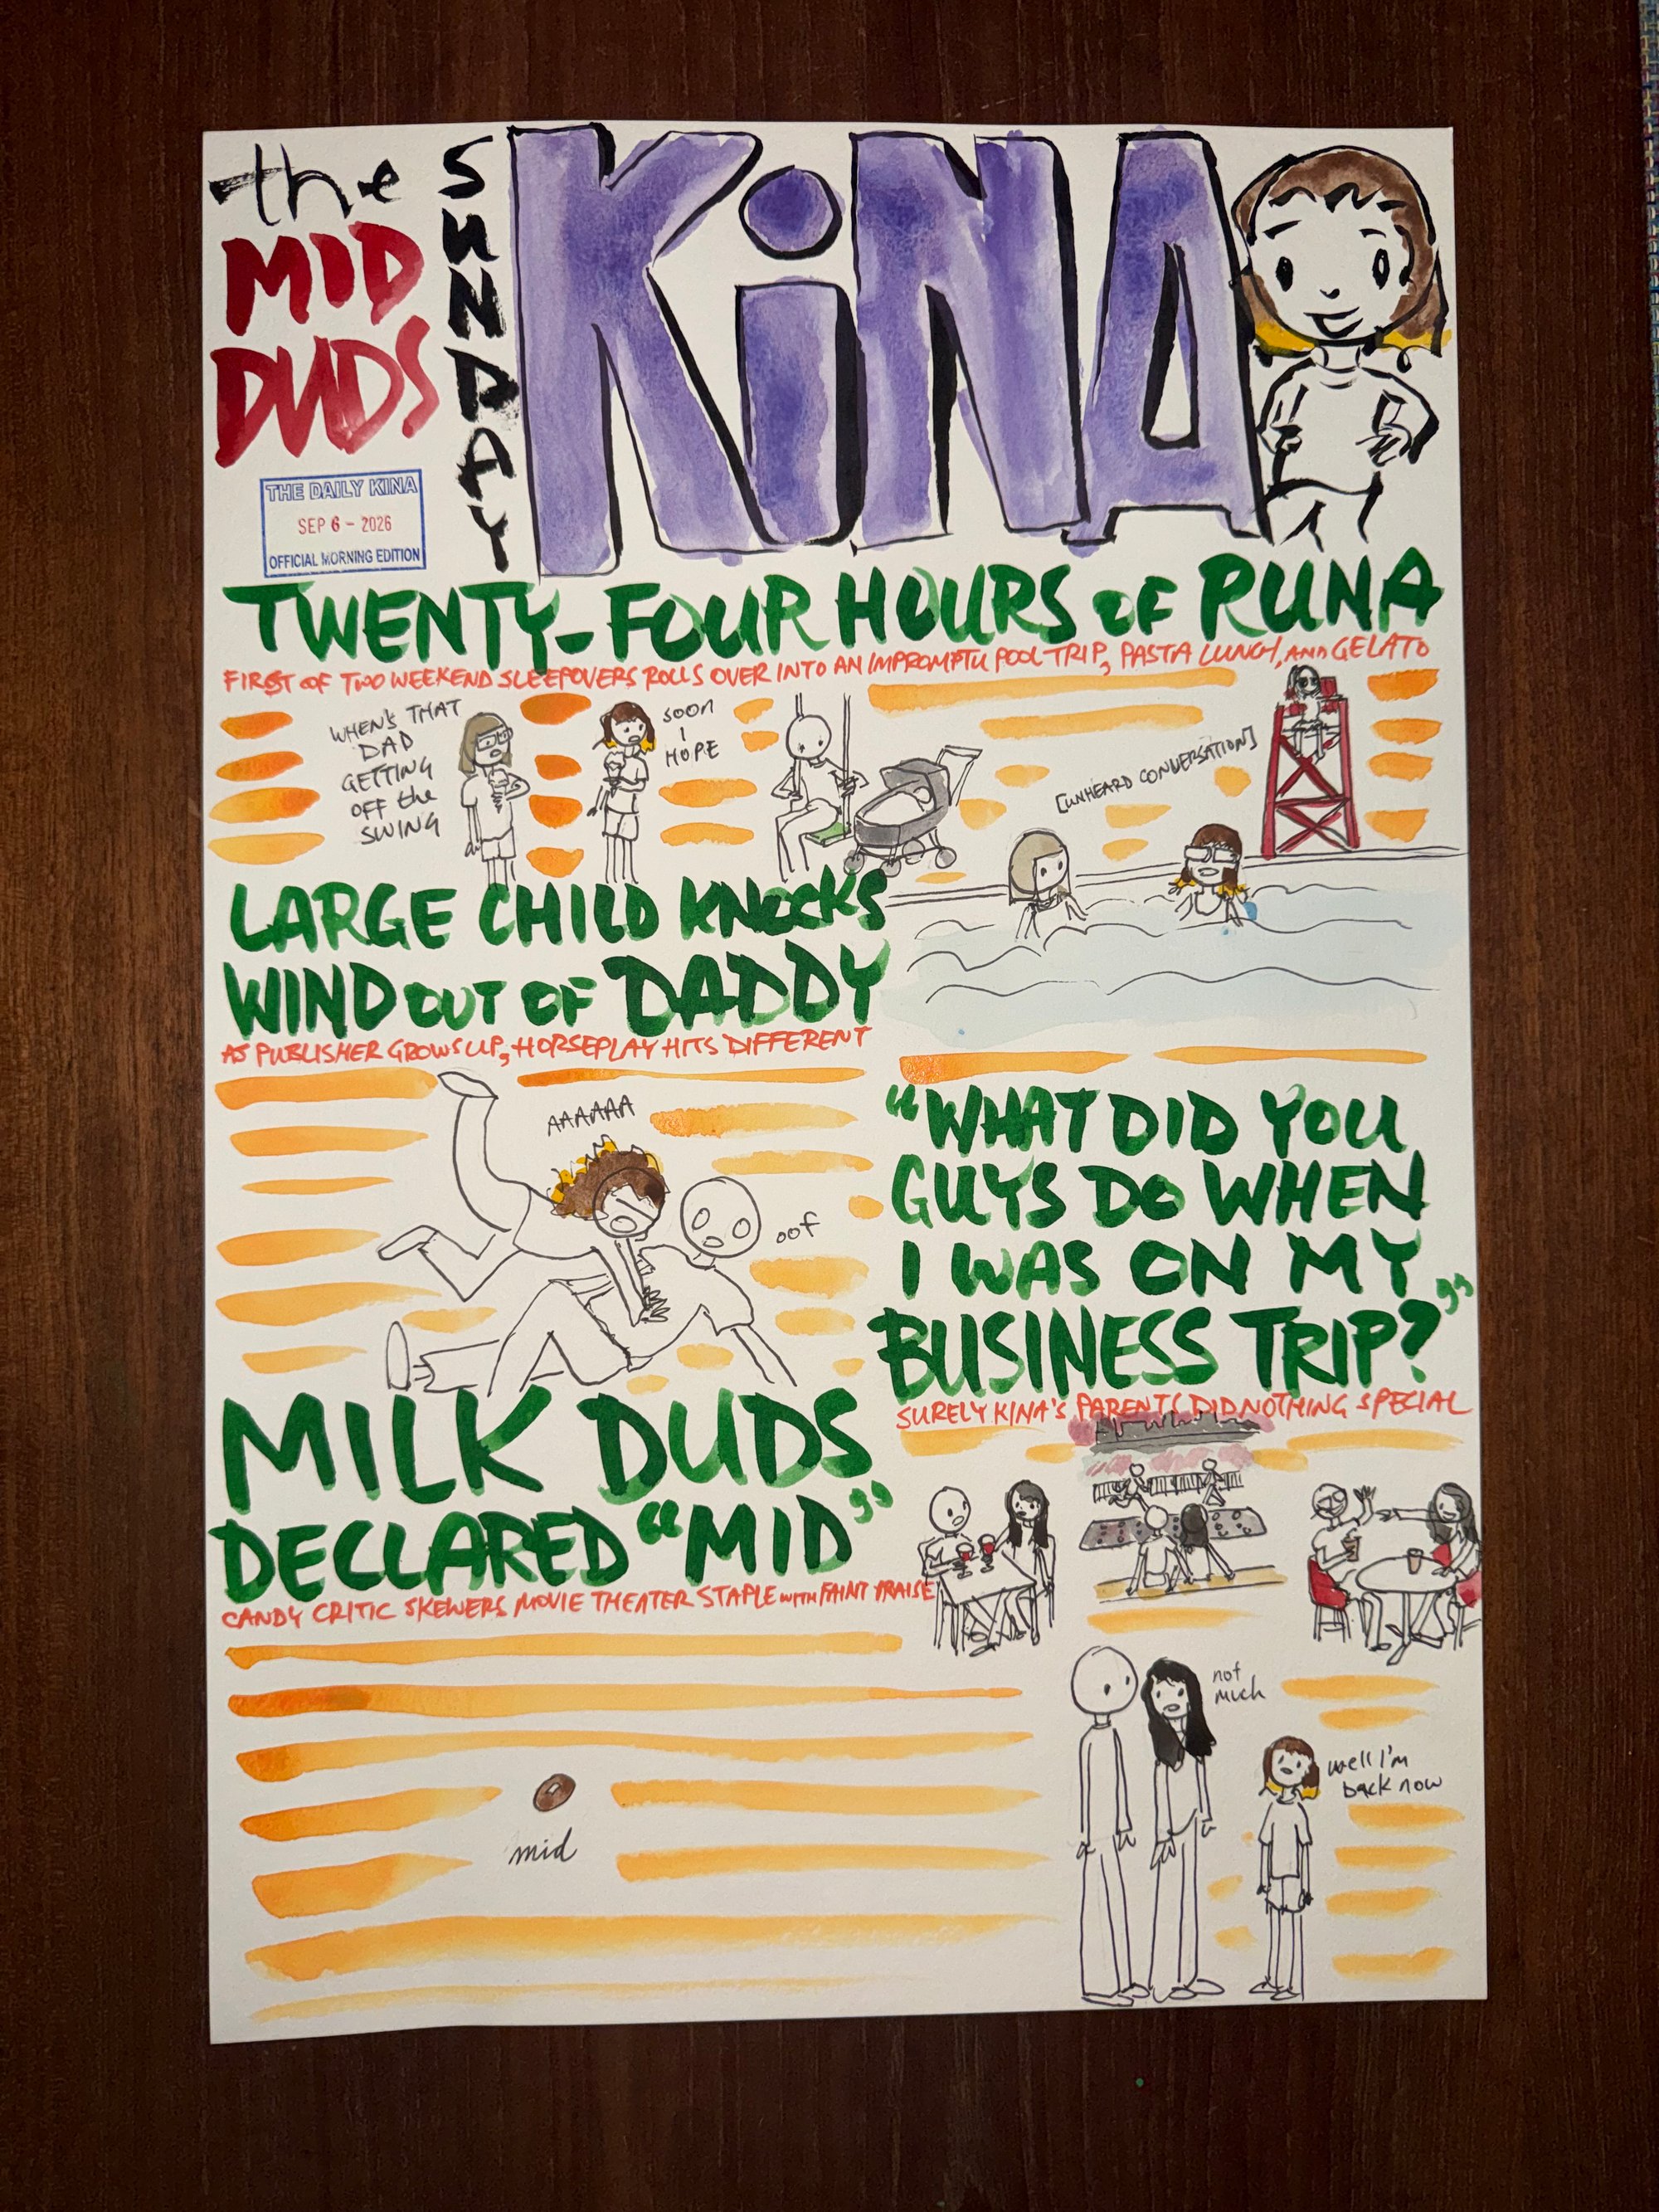 the
MID
DUDS
SUNDAY
KiNA
THE DAILY KINA
SEP 6 - 2026
OFFICIAL MORNING EDITION
TWENTY-FOUR HOURS OF RUNA
FIRST OF TWO WEEKEND SLEEPOVERS ROLLS OVER INTO AN IMPROMPTU POOL TRIP, PASTA LUNCH, AND GELATO
WHEN'S THAT
DAD
GETTING
OFF the
SWING
SOON
I
HOPE
[UNHEARD CONVERSATION]
LARGE CHILD KNOCKS
WIND OUT OF DADDY
AS PUBLISHER GROWS UP, HORSEPLAY HITS DIFFERENT
AAAAAA
oof
"WHAT DID YOU
GUYS DO WHEN
I WAS ON MY
BUSINESS TRIP?"
SURELY KINA'S PARENTS DID NOTHING SPECIAL
not
much
well I'm
back now
MILK DUDS
DECLARED "MID"
CANDY CRITIC SKEWERS MOVIE THEATER STAPLE WITH FAINT PRAISE
mid